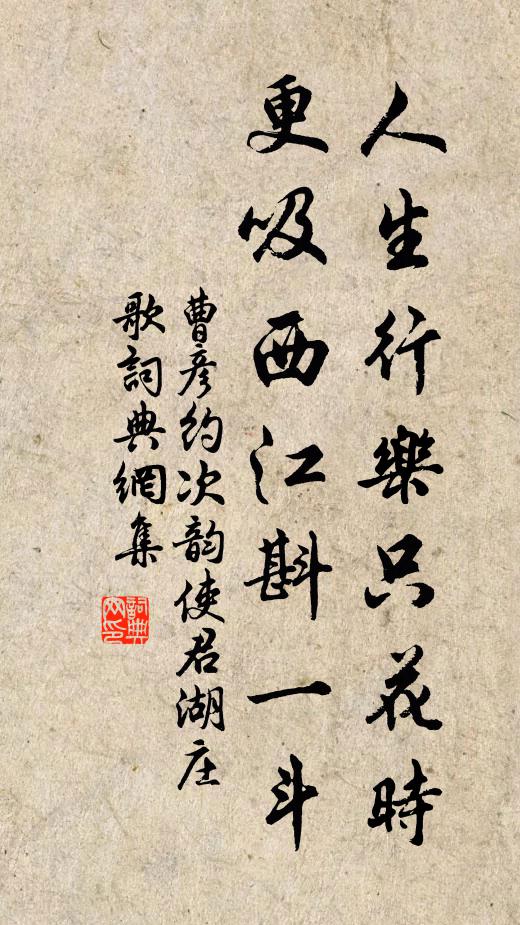 人生行樂只花時
更吸西江斟一斗
曹彥約次韵使君湖庄
歌詞典網集
詞典網印